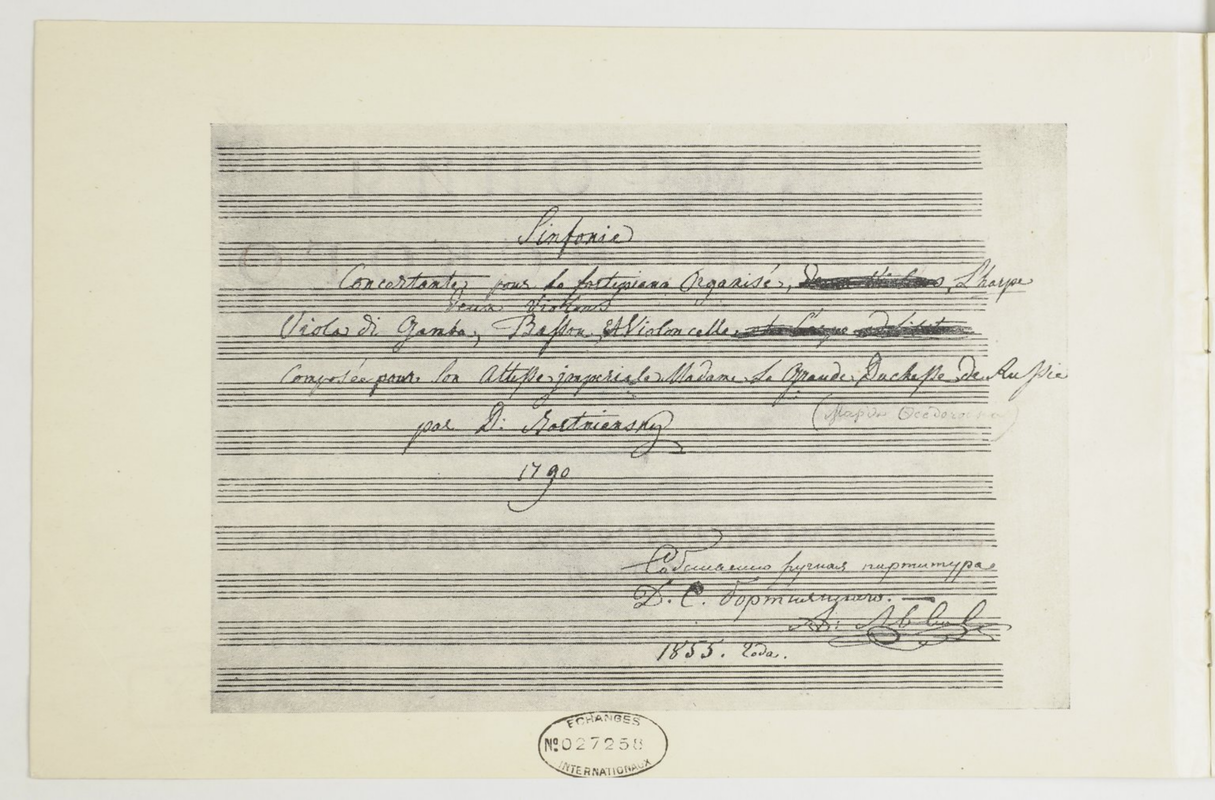 Sinfonie
Concertante pour le fortepiano Organisé, L'harpe
deux Violons
Viola di Gamba, Basson, et Violoncelle
Composée pour Son Altesse imperiale Madame La Grande Duchesse de Russie
(Марія Ѳеодоровна)
par D: Bortniansky
1790
Собственно ручная партитура
Д. С. Бортнянскаго. —
1855. Года.
ECHANGES
No 027258
INTERNATIONAUX